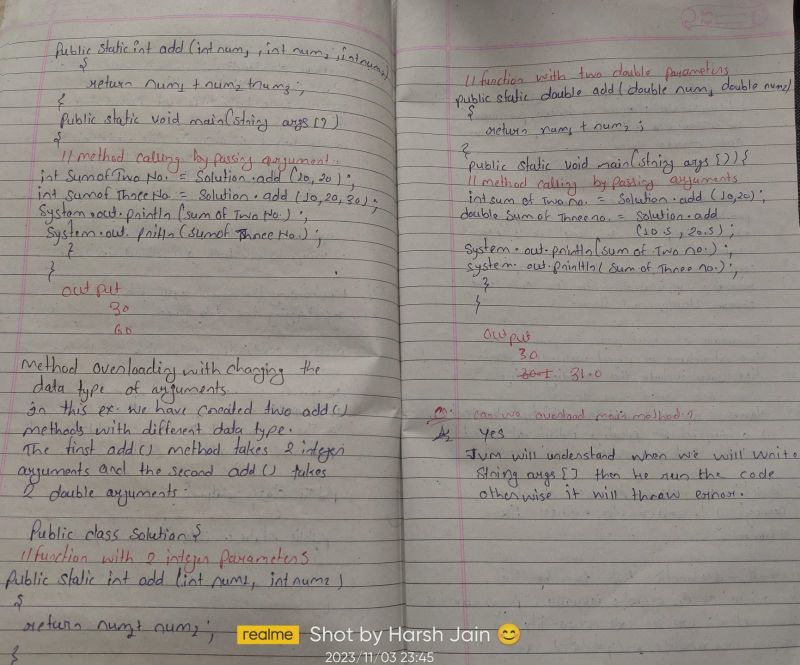 Public static int add (int num1, int num2, int num3)
{
return num1 + num2 + num3;
}
Public static void main(String args [])
{
// method calling by passing argument.
int Sum of Two No. = Solution.add (10, 20);
int Sum of Three No. = Solution.add (10, 20, 30);
System.out.println (sum of Two No.);
System.out.println (sum of Three No.);
}
}
output
30
60
method overloading with changing the
data type of arguments
In this ex. we have created two add()
methods with different data type.
The first add () method takes 2 integer
arguments and the second add () takes
2 double arguments.
Public class Solution {
// function with 2 integer Parameters
Public static int add (int num1, int num2)
{
return num1 + num2;
}
// function with two double parameters
Public static double add (double num1, double num2)
{
return num1 + num2;
}
Public static void main(String args []) {
// method calling by passing arguments
int sum of Two no. = Solution.add (10,20);
double Sum of Three no. = Solution.add
(10.5, 20.5);
System.out.println(sum of Two no.);
System.out.println(sum of Three no.);
}
}
output
30
31.0
Q. can we overload main method?
A. yes
Jvm will understand when we will write
String args [] then he run the code
otherwise it will throw error.
realme Shot by Harsh Jain 😊
2023/11/03 23:45